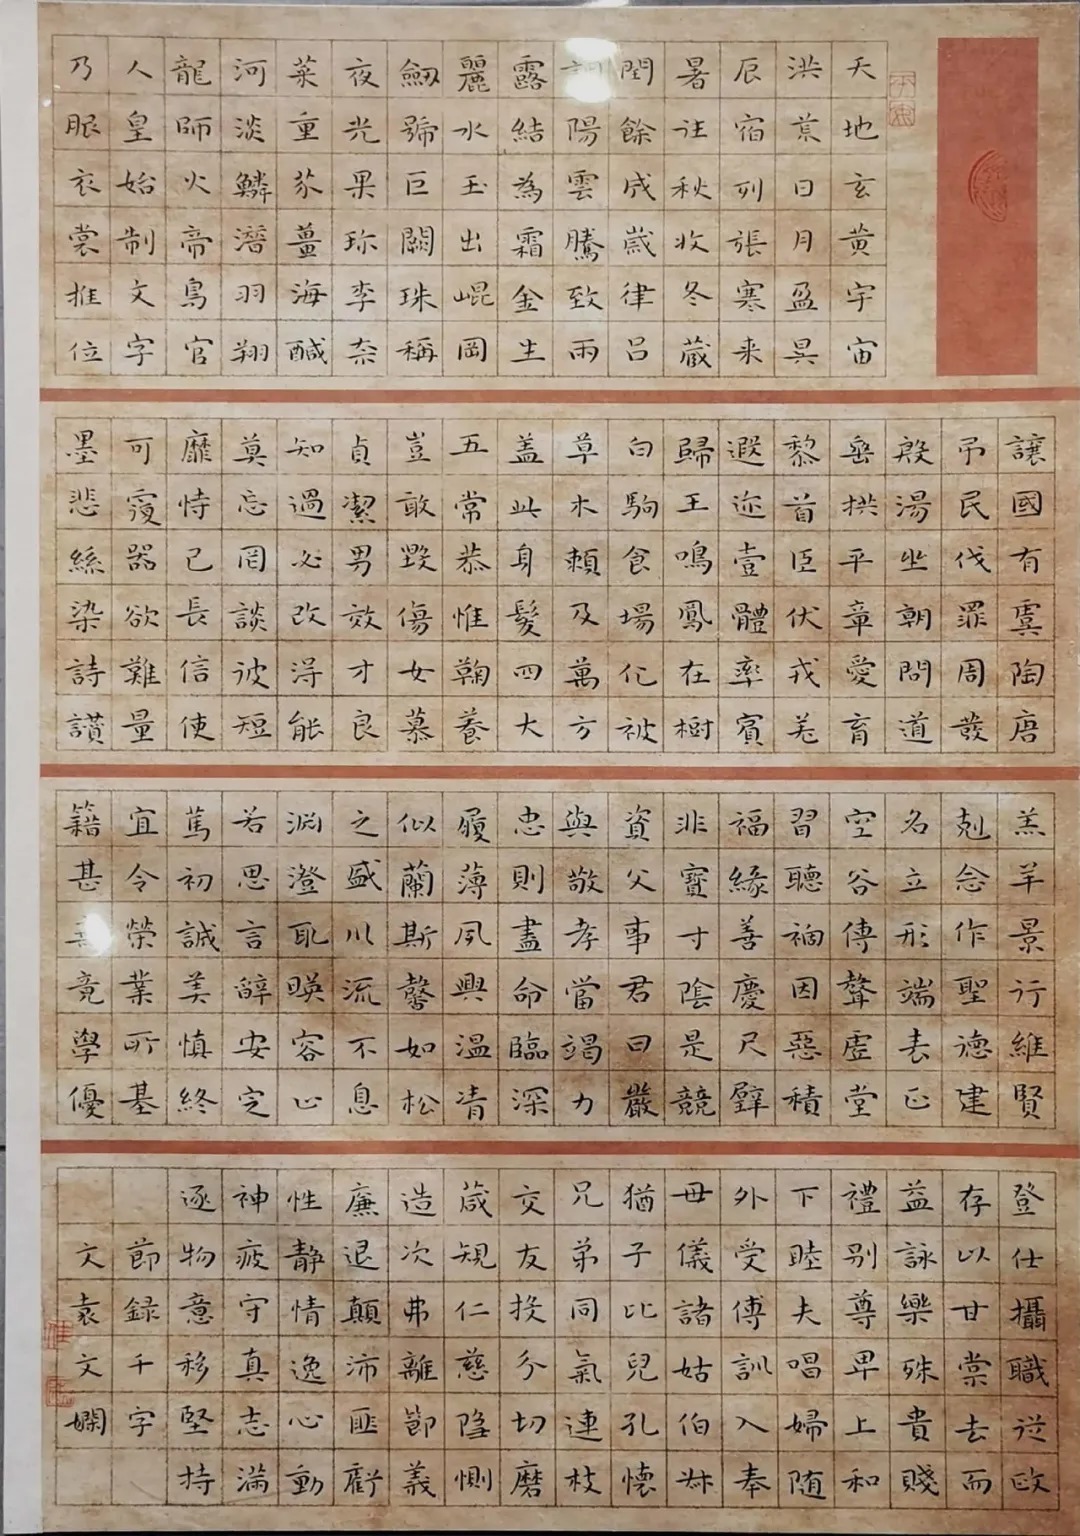 天地玄黄宇宙
洪荒日月盈昃
辰宿列張寒来
暑往秋收冬蔵
閏餘成歲律吕
調陽雲騰致雨
露結為霜金生
麗水玉出崐岡
劔號巨闕珠稱
夜光果珍李柰
菜重芥薑海醎
河淡鱗潛羽翔
龍師火帝鳥官
人皇始制文字
乃服衣裳推位
讓國有虞陶唐
弔民伐罪周發
殷湯坐朝問道
垂拱平章愛育
黎首臣伏戎羌
遐迩壹體率賓
歸王鳴鳳在樹
白駒食場化被
草木頼及萬方
盖此身髮四大
五常恭惟鞠養
豈敢毀傷女慕
貞潔男效才良
知過必改得能
莫忘罔談彼短
靡恃己長信使
可覆器欲難量
墨悲絲染詩讃
羔羊景行維賢
剋念作聖德建
名立形端表正
空谷傳聲虛堂
習聽禍因惡積
福緣善慶尺璧
非寶寸陰是競
資父事君曰嚴
與敬孝當竭力
忠則盡命臨深
履薄夙興温凊
似蘭斯馨如松
之盛川流不息
淵澄取暎容止
若思言辭安定
篤初誠美慎終
宜令榮業所基
籍甚無竟學優
登仕攝職從政
存以甘棠去而
益詠樂殊貴賤
禮别尊卑上和
下睦夫唱婦随
外受傅訓入奉
母儀諸姑伯叔
猶子比兒孔懷
兄弟同氣連枝
交友投分切磨
箴規仁慈隐惻
造次弗離節義
廉退顛沛匪虧
性静情逸心動
神疲守真志滿
逐物意移堅持
節録千字
文袁文嫻